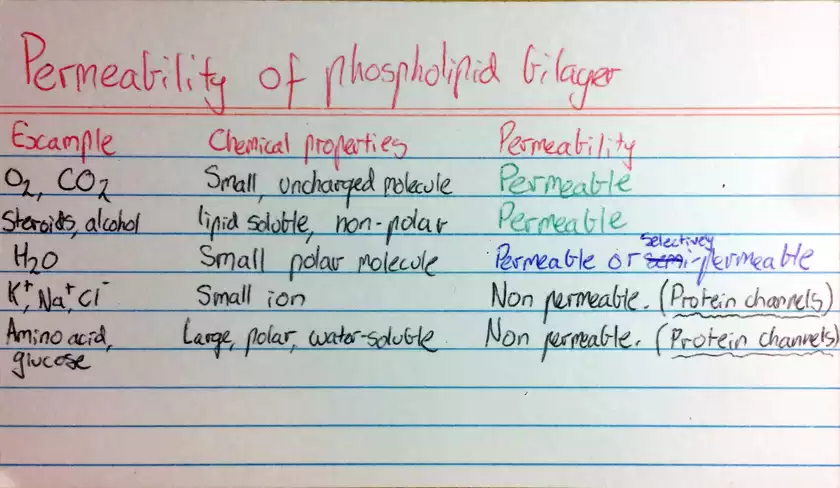 Permeability of phospholipid bilayer
Example Chemical properties Permeability
O2, CO2 Small, uncharged molecule Permeable
Steroids, alcohol lipid soluble, non-polar Permeable
H2O Small polar molecule Permeable or selectively permeable
K+, Na+, Cl- Small ion Non permeable. (Protein channels)
Amino acid, glucose Large, polar, water-soluble Non permeable. (Protein channels)